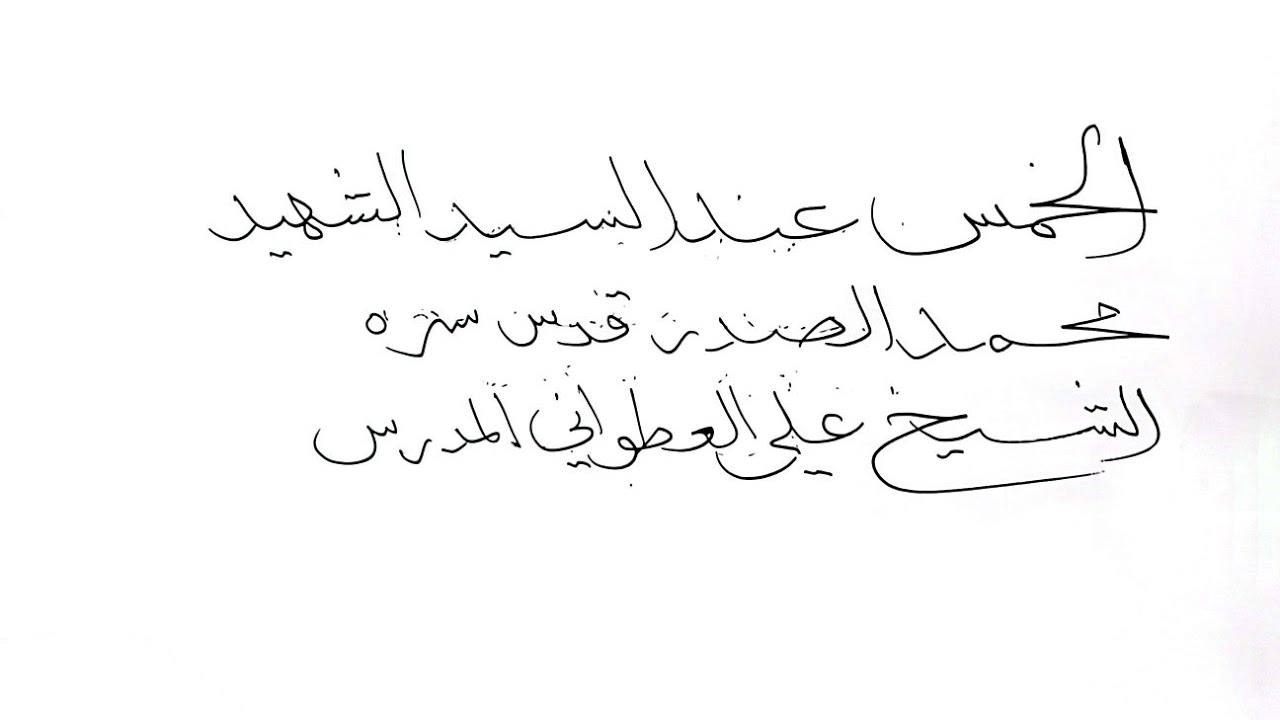 الخمس عند السيد الشهيد
محمد الصدر قدس سره
الشيخ علي العطواني المدرس